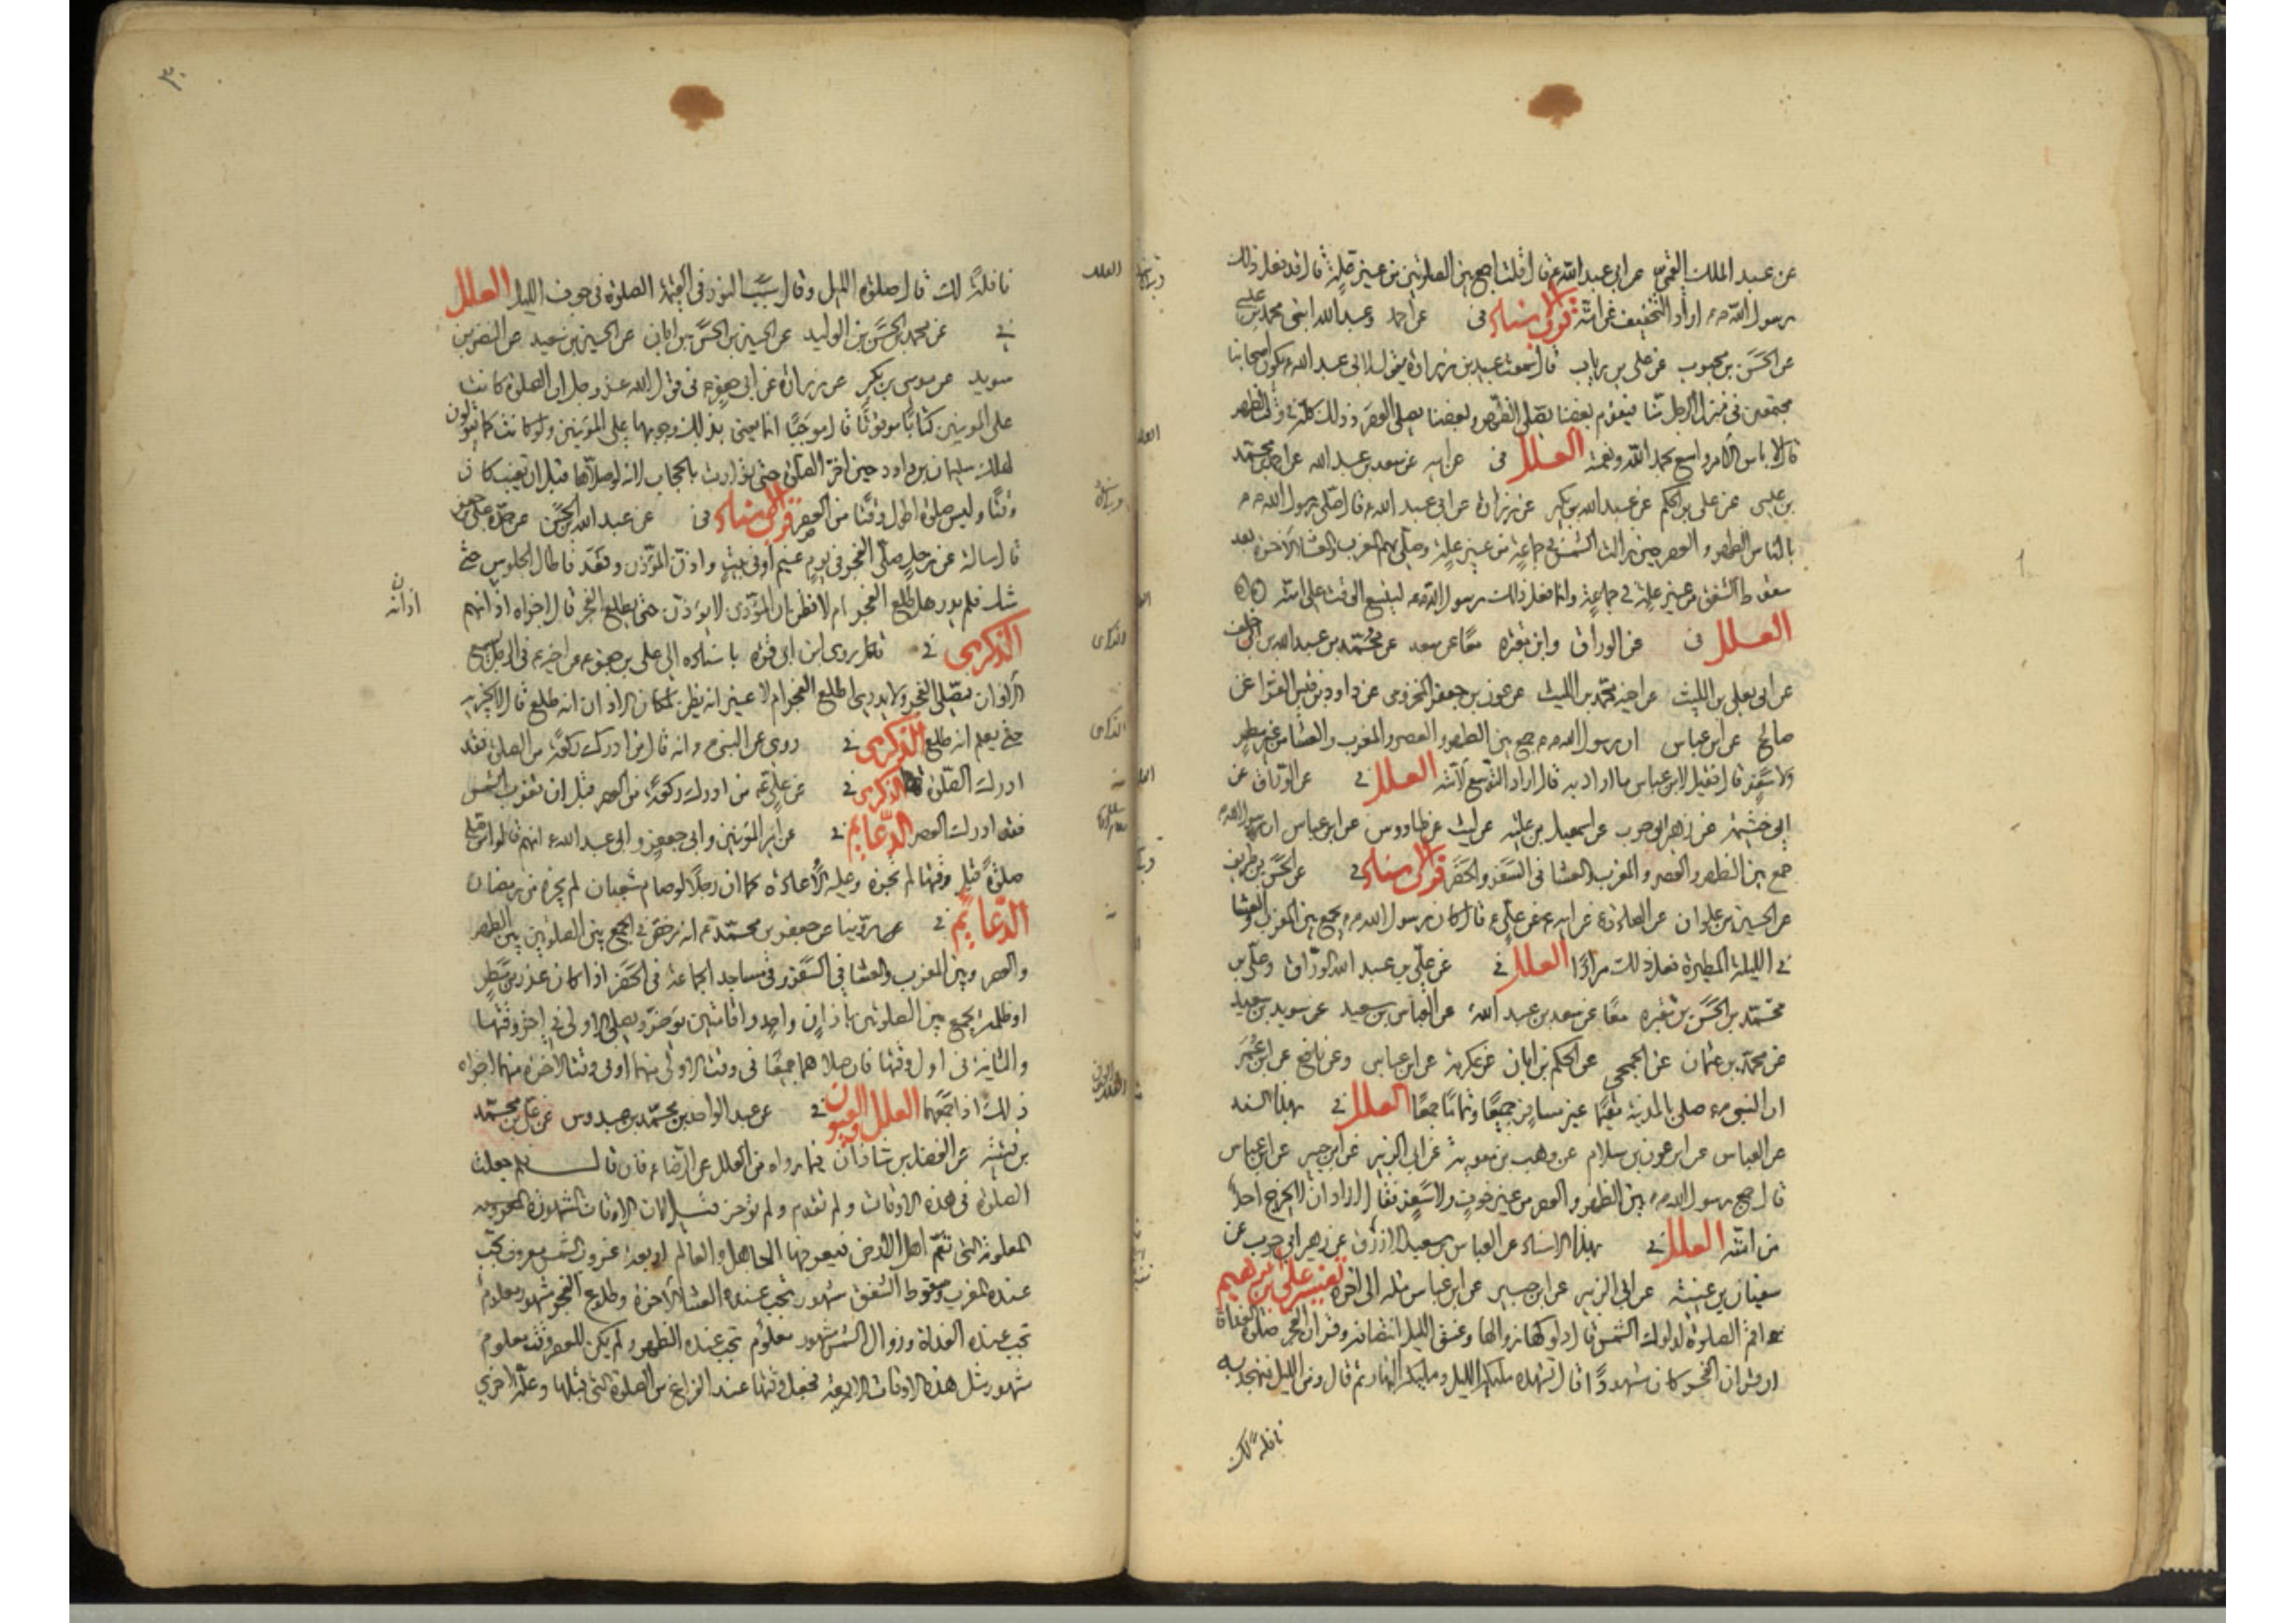 عن عبد الملك القمي عن ابي عبد الله ع قال قلت اجمع بين الصلوتين من غير علة قال قد فعل ذلك
رسول الله ص اراد التخفيف عن امته قرب الاسناد في عن احمد وعبد الله ابنى محمد بن عيسى
عن الحسن بن محبوب عن على بن رياب قال سمعت عبيد بن زرارة يقول لابى عبد الله ع يكون اصحابنا
مجتمعين في منزل الرجل منا فيقوم بعضنا يصلى الظهر وبعضنا يصلى العصر وذلك كله في وقت الظهر
قال لا باس الامر واسع بحمد الله ونعمته العلل في عن ابيه عن سعد بن عبد الله عن احمد بن محمد
بن عيسى عن على بن الحكم عن عبد الله بن بكير عن زرارة عن ابى عبد الله ع قال صلى رسول الله ص
بالناس الظهر والعصر حين زالت الشمس في جماعة من غير علة وصلى بهم المغرب والعشا الآخرة بعد
سقوط الشفق من غير علة في جماعة وانما فعل ذلك رسول الله ص ليتسع الوقت على امته
العلل في عن الوراق وابن مقبره معا عن سعد عن محمد بن عبد الله بن ابى خلف
عن ابى يعلى بن الليث عن اخيه محمد بن الليث عن عون بن جعفر المخزومى عن داود بن قيس الفرا عن
صالح عن ابن عباس ان رسول الله ص جمع بين الظهر والعصر والمغرب والعشا من غير مطر
ولا سفر قال فقيل لابن عباس ما اراد به قال اراد التوسع لامته العلل في عن الوراق عن
ابى خثيمة عن زهير ابى حرب عن اسمعيل بن علية عن ليث عن طاووس عن ابن عباس ان رسول الله ص
جمع بين الظهر والعصر والمغرب والعشا في السفر والحضر قرب الاسناد في عن الحسن بن ظريف
عن الحسين بن علوان عن الصادق ع عن ابيه ع عن على ع قال كان رسول الله ص يجمع بين المغرب والعشا
في الليلة المطيرة فعل ذلك مرارا العلل في عن على بن عبد الله الوراق وعلى بن
محمد بن الحسن بن مقبره معا عن سعد بن عبد الله عن العباس بن سعيد عن سويد بن سعيد
عن محمد بن عثمان عن الجمحي عن الحكم بن ابان عن عكرمة عن ابن عباس وعن نافع عن ابن عمر
ان النبي ص صلى بالمدينة مقيما غير مسافر جميعا وتماما جمعا العلل في بهذا السند
عن العباس عن ابن عون بن سلام عن وهب بن معوية عن ابى الزبير عن ابن جبير عن ابن عباس
قال جمع رسول الله ص بين الظهر والعصر من غير خوف ولا سفر فقال اراد ان لا يحرج احد
من امته العلل في بهذا الاسناد عن العباس بن سعيد الازرق عن زهير ابى حرب عن
سفيان بن عيينة عن ابى الزبير عن ابن جبير عن ابن عباس مثله الى آخره تفسير على بن ابرهيم
اقم الصلوة لدلوك الشمس قال دلوكها زوالها وغسق الليل انتصافه وقران الفجر صلوة الغداة
ان قران الفجر كان مشهودا قال تشهده مليكة الليل ومليكة النهار ثم قال ومن الليل فتهجد به
نافلة لك
٣٠
نافلة لك قال صلوة الليل وقال سبب النور في القيمة الصلوة في جوف الليل العلل
في عن محمد بن الحسن بن الوليد عن الحسين بن الحسن بن ابان عن الحسين بن سعيد عن النضر بن
سويد عن موسى بن بكر عن زرارة عن ابى جعفر ع في قول الله عز وجل ان الصلوة كانت
على المومنين كتابا موقوتا قال موجبا انما يعنى بذلك وجوبها على المومنين ولو كانت كما يقولون
لهلك سليمان بن داود حين اخر الصلوة حتى توارت بالحجاب لانه لو صلاها قبل ان تغيب كان
وقتا وليس صلوة اطول وقتا من العصر قرب الاسناد في عن عبد الله بن الحسن عن جده على بن جعفر
قال سالته عن رجل صلى الفجر في يوم غيم او في بيت واذن الموذن وقعد فاطال الجلوس حتى
شك فلم يدر هل طلع الفجر ام لا فظن ان الموذن لا يوذن حتى يطلع الفجر قال اجزاه اذانهم
الذكرى في قال روى ابن ابى قره باسناده الى على بن جعفر ع عن اخيه ع في الرجل يسمع
الاذان فيصلى الفجر ولا يدرى اطلع الفجر ام لا غير انه يظن لمكان الاذان انه طلع قال لا يجزيه
حتى يعلم انه طلع الذكرى في روى عن النبي ص انه قال من ادرك ركعة من الصلوة فقد
ادرك الصلوة الذكرى في عن على ع من ادرك ركعة من العصر قبل ان تغرب الشمس
فقد ادرك العصر الدعايم في عن امير المومنين وابى جعفر وابى عبد الله ع انهم قالوا من صلى
صلوة قبل وقتها لم تجزه وعليه الاعادة كما ان رجلا لو صام شعبان لم يجزه من رمضان
الدعايم في روينا عن جعفر بن محمد ع انه رخص في الجمع بين الصلوتين بين الظهر
والعصر وبين المغرب والعشا في السفر وفي مساجد الجماعة في الحضر اذا كان عذر من مطر
او ظلمة يجمع بين الصلوتين باذان واحد واقامتين يوخر ويصلى الاولى في اخر وقتها
والثانية في اول وقتها فان صلاهما جميعا في وقت الاولى منهما او في وقت الاخرة منهما اجزاه
ذلك اذا جمعهما العلل والعيون في عن عبد الواحد بن محمد بن عبدوس عن على بن محمد
بن قتيبه عن الفضل بن شاذان فيما رواه من العلل عن الرضا ع فان قال لم جعلت
الصلوة في هذه الاوقات ولم تقدم ولم توخر قيل لان الاوقات المشهورة
المعلومة التى تعم اهل الارض فيعرفها الجاهل والعالم اربعة غروب الشمس معروف تجب
عنده المغرب وسقوط الشفق مشهور تجب عنده العشا الآخرة وطلوع الفجر مشهور معلوم
تجب عنده الغداة وزوال الشمس مشهور معلوم تجب عنده الظهر ولم يكن للعصر وقت معلوم
مشهور مثل هذه الاوقات الاربعة فجعل وقتها عند الفراغ من الصلوة التى قبلها وعلة اخرى